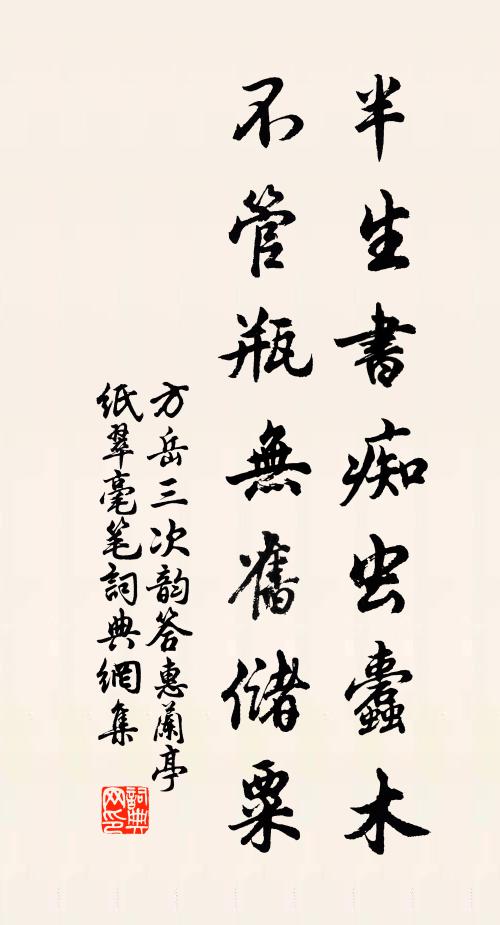 半生書痴虫蠹木
不管瓶無舊儲粟
方岳三次韵答惠蘭亭
紙翠毫笔詞典網集
詞典网印